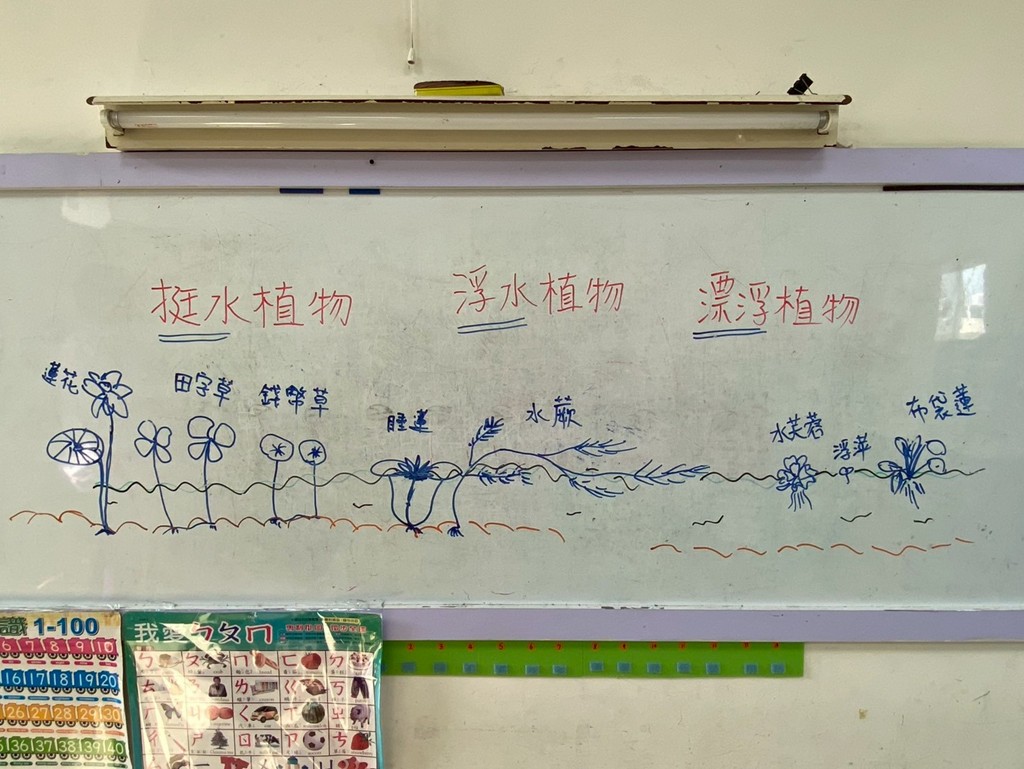 挺水植物
浮水植物
漂浮植物
蓮花
田字草
錢幣草
睡蓮
水蕨
水芙蓉
浮萍
布袋蓮
識 1-100
6 7 8 9 10
16 17 18 19 20
26 27 28 29 30
36 37 38 39 40
我愛ㄅㄆㄇ
ㄅ ㄆ ㄇ ㄈ ㄉ
ㄊ ㄋ ㄌ ㄍ ㄎ
ㄏ ㄐ ㄑ ㄒ ㄓ
ㄔ ㄕ ㄖ ㄗ ㄘ